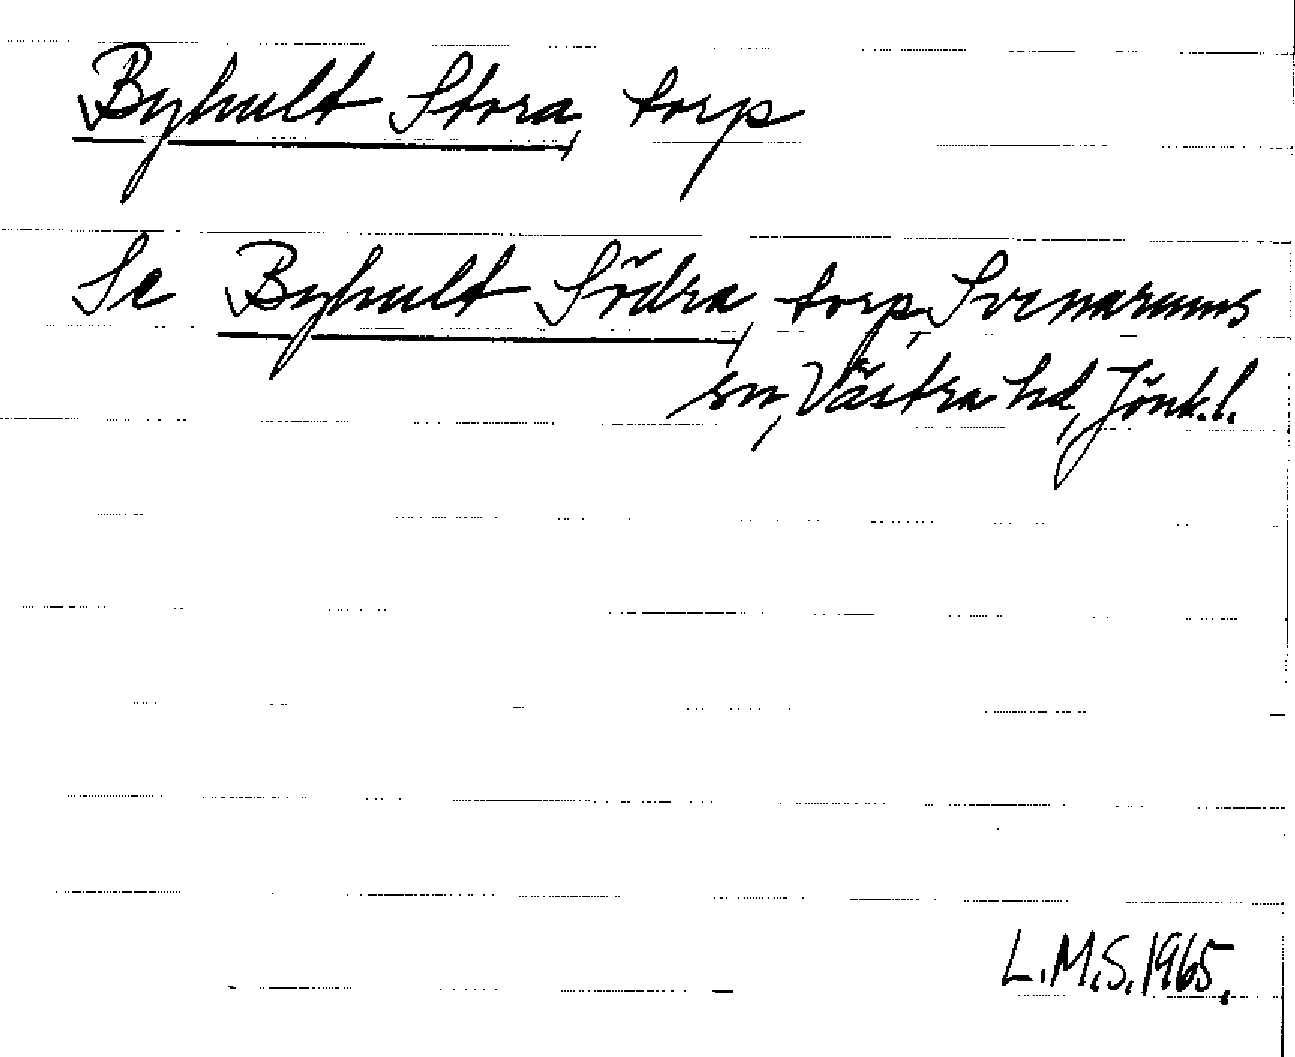 Byhult Stora, torp
Se Byhult Södra, torp, Svenarums
sn, Västra hd, Jönk.l.
L.M.S. 1965.